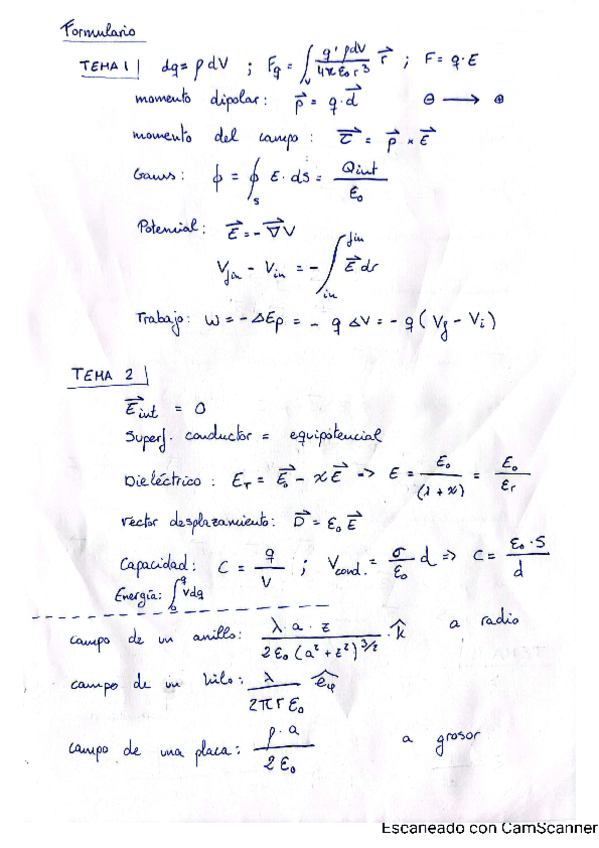 Formulario
TEMA 1 | dq = ρ dV ; F_q = ∫_V q' ρdV / 4πε₀r³ r⃗ ; F = q·E
momento dipolar: p⃗ = q·d⃗ ⊖ → ⊕
momento del campo: τ⃗ = p⃗ × E⃗
Gauss: ϕ = ∮_S E·ds = Qint / ε₀
Potencial: E⃗ = -∇⃗V
V_fin - V_in = -∫_in^fin E⃗ dr
Trabajo: W = -ΔEp = - q ΔV = - q (V_f - V_i)
TEMA 2 |
E⃗int = 0
Superf. conductor = equipotencial
Dieléctrico: E_T = E⃗₀ - χE⃗ => E = E₀ / (1 + χ) = E₀ / ε_r
vector desplazamiento: D⃗ = ε₀ E⃗
Capacidad: C = q / V ; V_cond. = σ / ε₀ d => C = ε₀·S / d
Energía: ∫_0^q Vdq
campo de un anillo: λ·a·z / 2ε₀(a²+z²)^3/2 · k̂ a radio
campo de un hilo: λ / 2πrε₀ ê_φ
campo de una placa: ρ·a / 2ε₀ a grosor
Escaneado con CamScanner